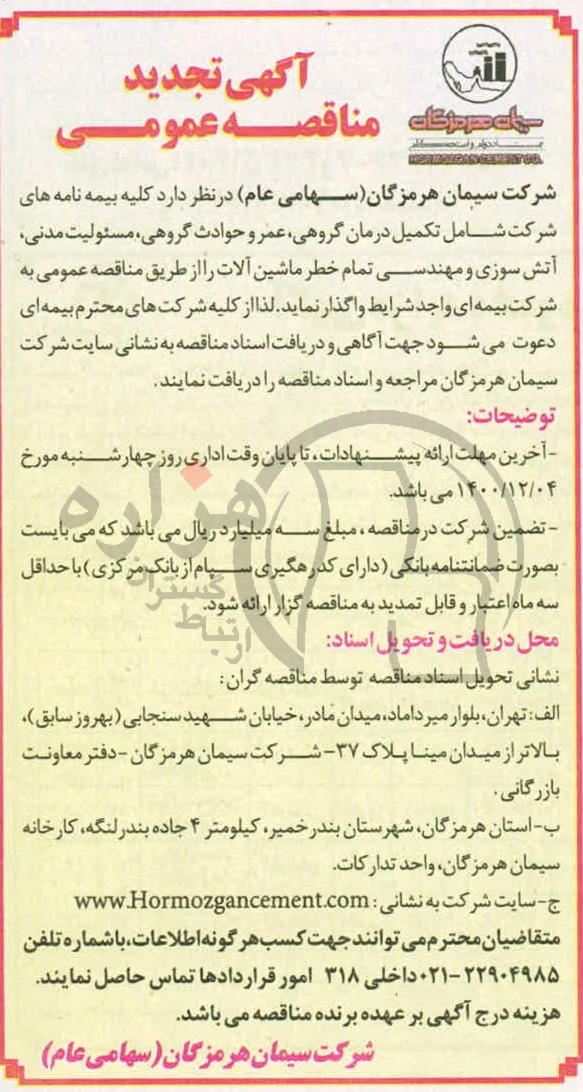 آگهی تجدید
مناقصه عمومی
سیمان هرمزگان
نماد دوام و استحکام
HORMOZGAN CEMENT CO.
شرکت سیمان هرمزگان(سهامی عام) درنظر دارد کلیه بیمه نامه های
شرکت شامل تکمیل درمان گروهی، عمر و حوادث گروهی، مسئولیت مدنی،
آتش سوزی و مهندسی تمام خطر ماشین آلات را از طریق مناقصه عمومی به
شرکت بیمه ای واجد شرایط واگذار نماید. لذا از کلیه شرکت های محترم بیمه ای
دعوت می شود جهت آگاهی و دریافت اسناد مناقصه به نشانی سایت شرکت
سیمان هرمزگان مراجعه و اسناد مناقصه را دریافت نمایند.
توضیحات:
-آخرین مهلت ارائه پیشنهادات، تا پایان وقت اداری روز چهارشنبه مورخ
۱۴۰۰/۱۲/۰۴ می باشد.
- تضمین شرکت در مناقصه، مبلغ سه میلیارد ریال می باشد که می بایست
بصورت ضمانتنامه بانکی (دارای کد رهگیری سپام از بانک مرکزی) با حداقل
سه ماه اعتبار و قابل تمدید به مناقصه گزار ارائه شود.
محل دریافت و تحویل اسناد:
نشانی تحویل اسناد مناقصه توسط مناقصه گران:
الف: تهران، بلوار میرداماد، میدان مادر، خیابان شهید سنجابی (بهروز سابق)،
بالاتر از میدان مینا پلاک ۳۷- شرکت سیمان هرمزگان -دفتر معاونت
بازرگانی.
ب-استان هرمزگان، شهرستان بندرخمیر، کیلومتر ۴ جاده بندرلنگه، کارخانه
سیمان هرمزگان، واحد تدارکات.
ج-سایت شرکت به نشانی: www.Hormozgancement.com
متقاضیان محترم می توانند جهت کسب هرگونه اطلاعات، با شماره تلفن
۰۲۱-۲۲۹۰۴۹۸۵ داخلی ۳۱۸ امور قراردادها تماس حاصل نمایند.
هزینه درج آگهی بر عهده برنده مناقصه می باشد.
شرکت سیمان هرمزگان (سهامی عام)
هزاره
گستران
ارتباط